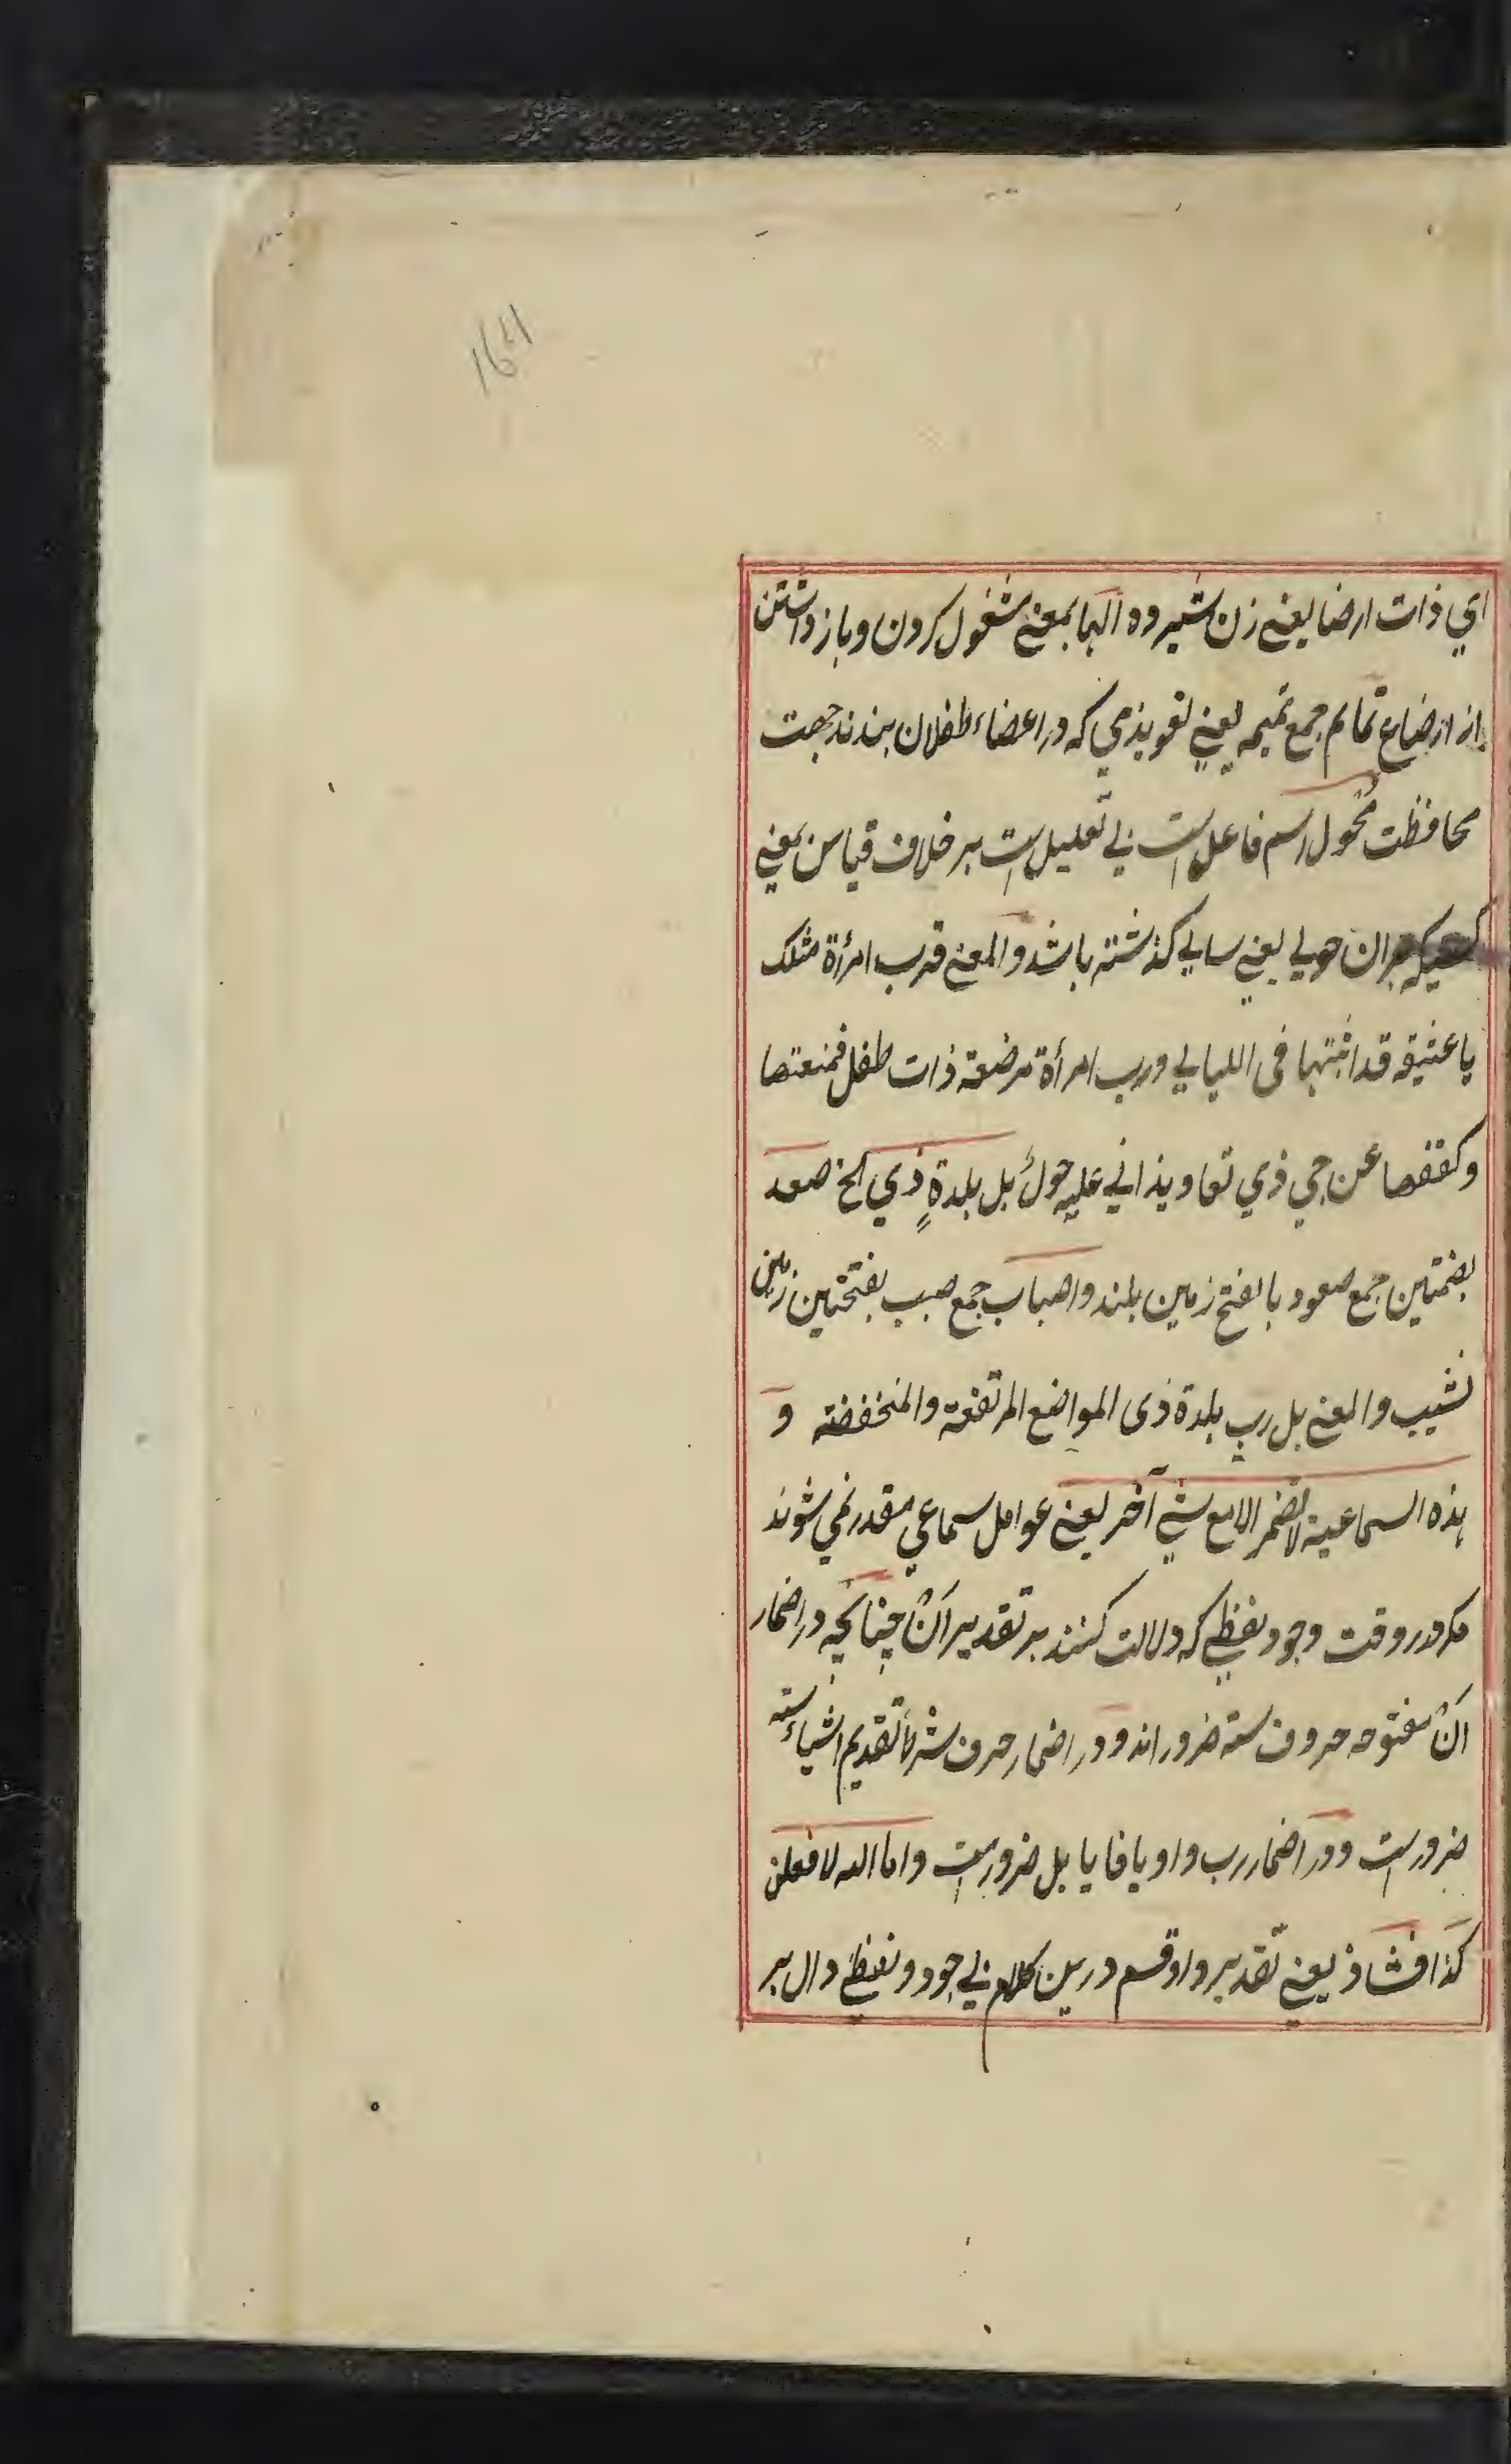 164
اي ذات ارضا یعنے زن شیرده الها بمعنے مشغول کردن و باز داشتن
از ارضاع تمایم جمع تمیمه یعنے تعویذی که در اعضاء طفلان بندند جهت
محافظت محول اسم فاعل است بے تعلیل است بر خلاف قیاس بمعنے
کسیکه بران حولے یعنے سالے گذشته باشد والمعنے فرب امرأة مثلک
یا عنیزه قد اتیتها فی اللیالے ورب امرأة مرضعة ذات طفل فمنعتها
وکففها عن حي ذي تعاویذ اتي علیه حول بل بلدةٍ ذي الخ صعد
بضمتین جمع صعود بالفتح زمین بلند واصباب جمع صبب بفتحتین زمین
نشیب والمعنے بل رب بلدة ذی المواضع المرتفعة والمنخفضة و
هذه السماعیة لا تضمر الا مع شئ آخر یعنے عوامل سماعي مقدر نمي شوند
مگر در وقت وجود لفظے که دلالت کنند بر تقدیر آن چنانچه در اضمار
ان مفتوحه حروف سته ضرور اند و در اضمار حرف شرط تقدیم اشیاء سته
ضرور است و در اضمار رب واو یا فا یا بل ضرور است واما الله لافعلن
کذا فشاذ یعنے تقدیر واو قسم درین کلام بے وجود لفظے دال بر